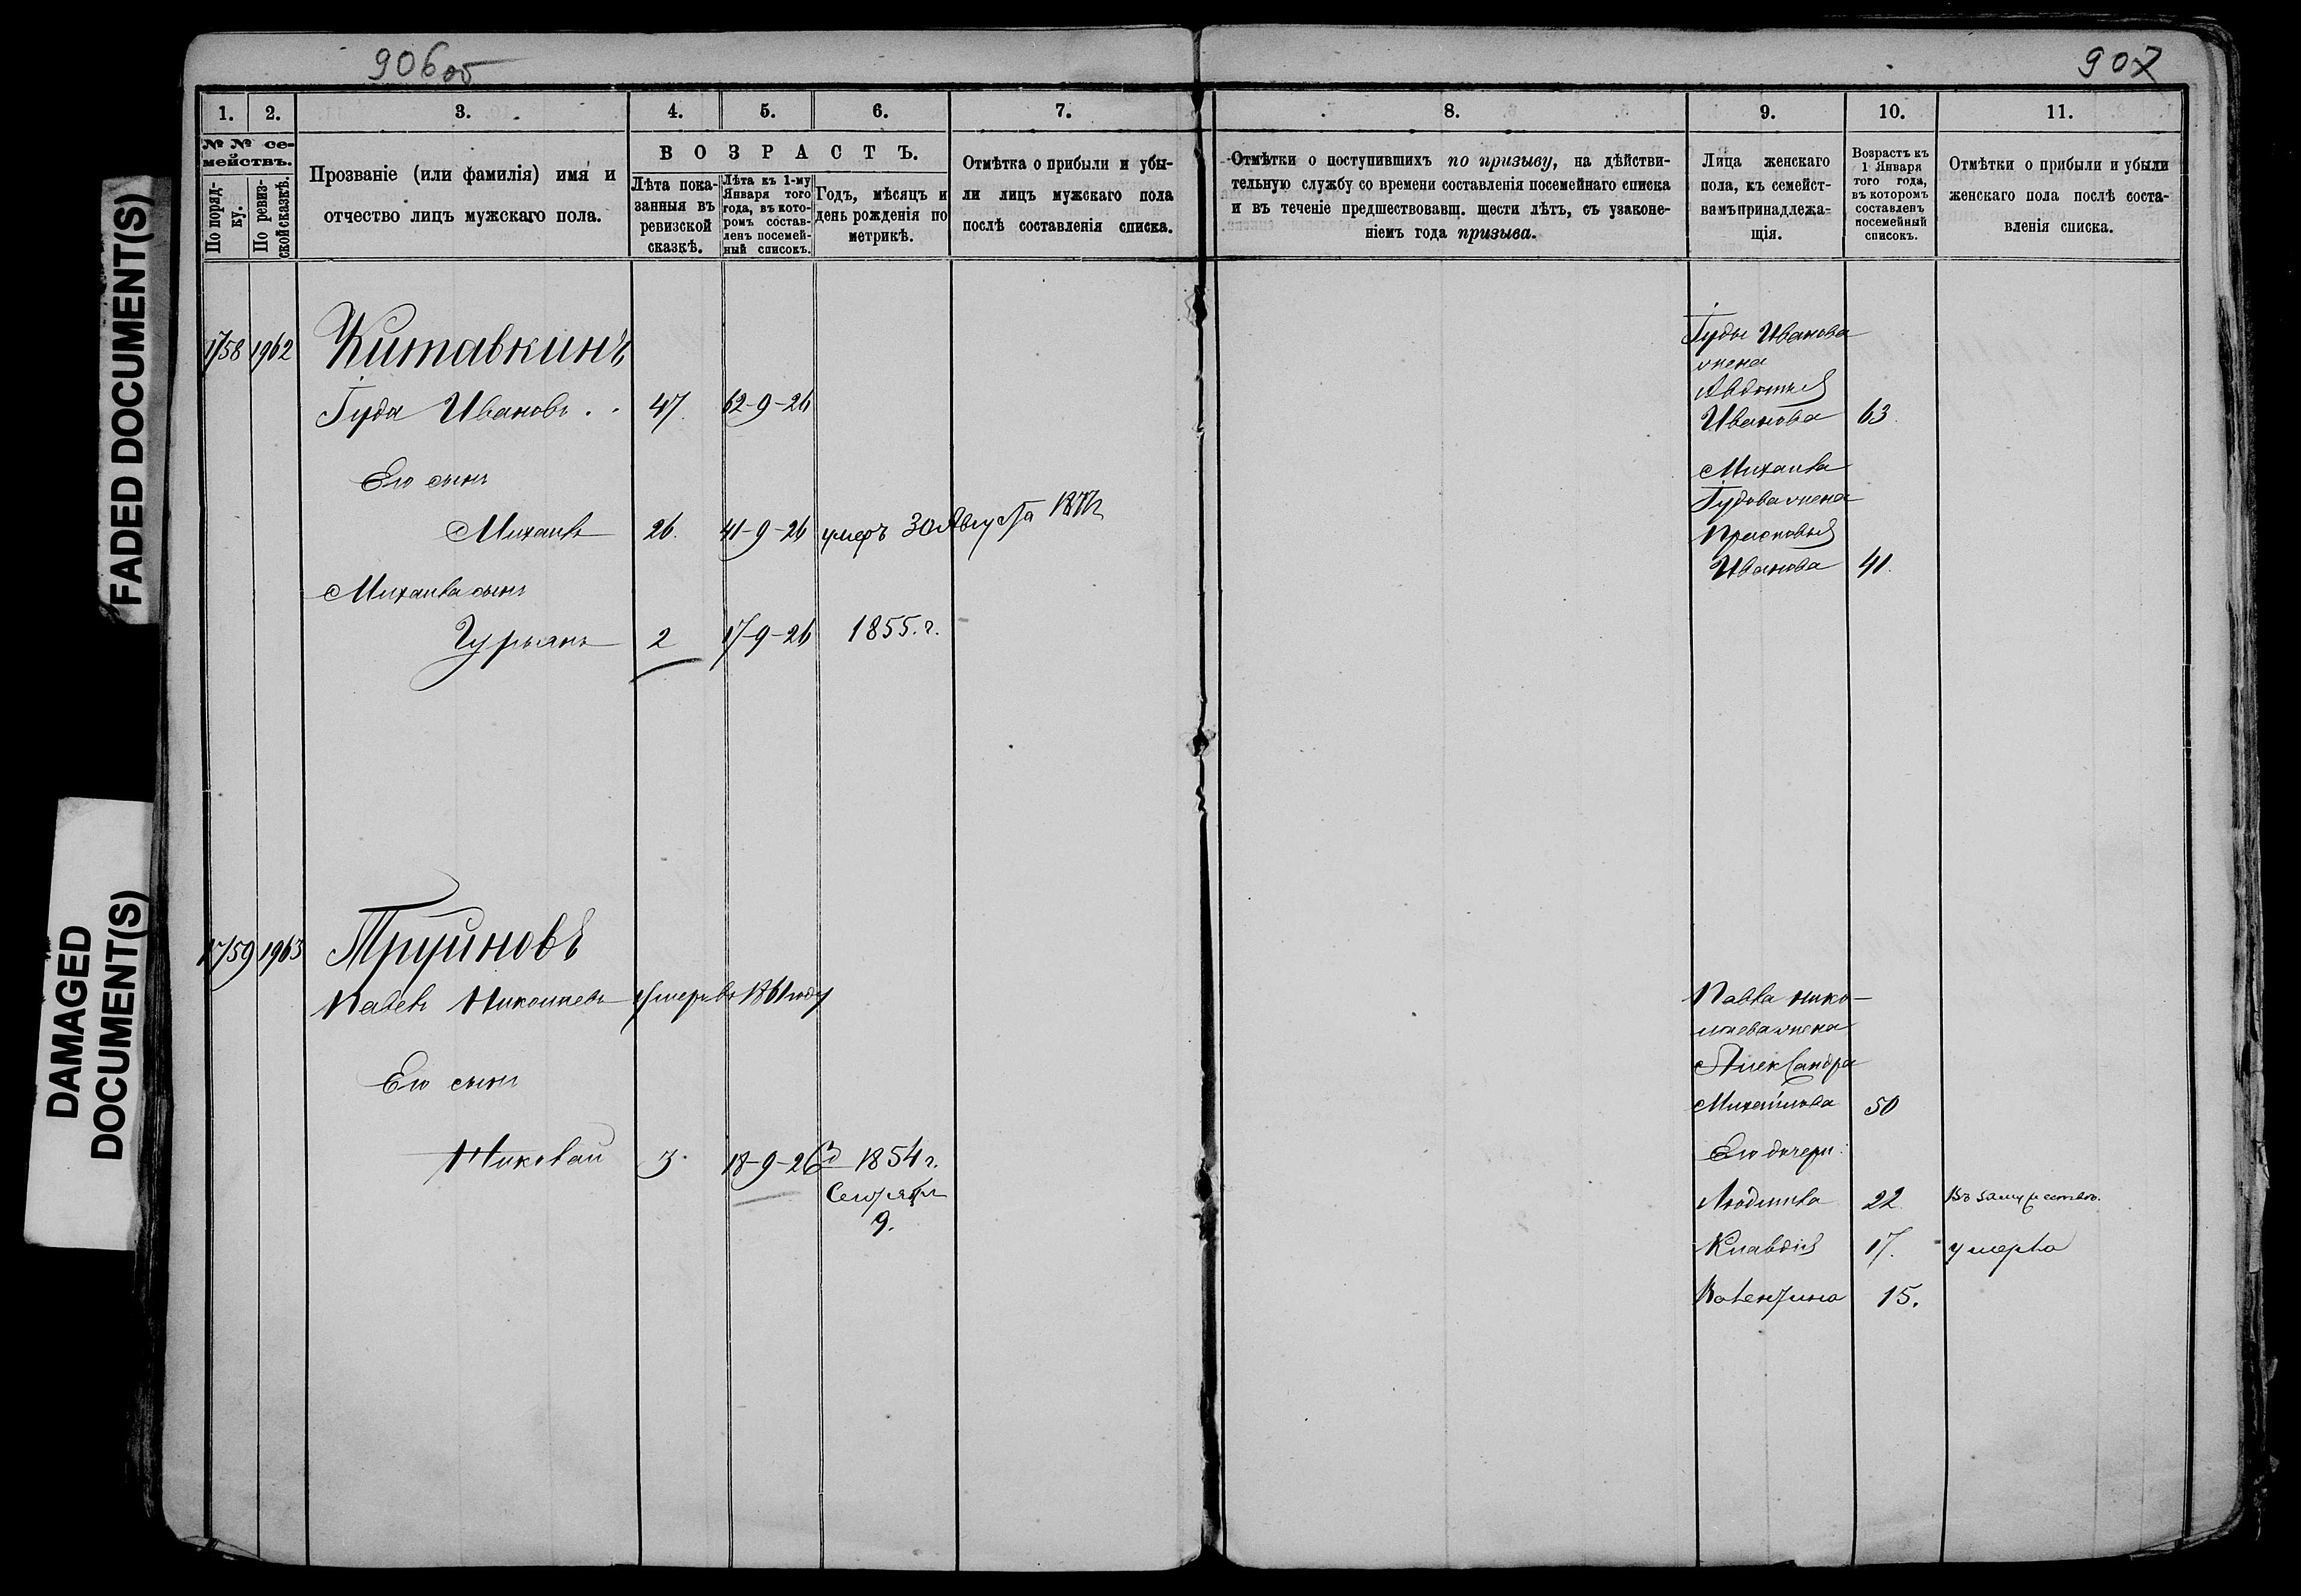 FADED DOCUMENT(S)
DAMAGED
DOCUMENT(S)
906 об
907
1. 2. 3. 4. 5. 6. 7. 8. 9. 10. 11.
№ № се-
мействъ.
По поряд-
ку.
По ревиз-
ской сказкѣ.
Прозваніе (или фамилія) имя и
отчество лицъ мужскаго пола.
ВОЗРАСТЪ.
Лѣта пока-
занныя въ
ревизской
сказкѣ.
Лѣта къ 1-му
Января того
года, въ кото-
ромъ состав-
ленъ посемей-
ный списокъ.
Годъ, мѣсяцъ и
день рожденія по
метрикѣ.
Отмѣтка о прибыли и убы-
ли лицъ мужскаго пола
послѣ составленія списка.
Отмѣтки о поступившихъ по призыву, на дѣйстви-
тельную службу со времени составленія посемейнаго списка
и въ теченіе предшествовавш. шести лѣтъ, съ узаконе-
ніемъ года призыва.
Лица женскаго
пола, къ семейст-
вамъ принадлежа-
щія.
Возрастъ къ
1 Января
того года,
въ которомъ
составленъ
посемейный
списокъ.
Отмѣтки о прибыли и убыли
женскаго пола послѣ соста-
вленія списка.
1758 1962 Китавкинъ
Іуда Ивановъ 47. 62-9-26
Его сынъ
Михаилъ 26. 41-9-26 умеръ 30 Августа
Михаила сынъ
Гурьянъ 2 17-9-26 1855. г.
Іуды Иванова
жена
Авдотья
Иванова 63.
Михаила
Іудова жена
Прасковья
Иванова 41.
1759 1963
Павелъ Николаевъ умеръ въ 1861 году
Его сынъ
Николай 3. 18-9-26 1854 г.
Сентября
9.
Павла Нико-
лаева жена
Александра
Михайлова 50
Его дочери:
Людмила 22. Въ замужествѣ.
Клавдія 17. умерла
Валентина 15.